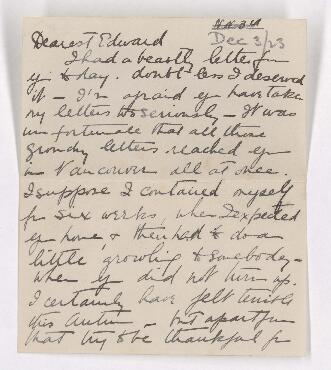 Dec 3/23
Dearest Edward
I had a beastly letter from
you today. doubtless I deserved
it - I'm afraid you have taken
my letters too seriously - It was
unfortunate that all those
grouchy letters reached you
in Vancouver all at once.
I suppose I contained myself
for six weeks, when I expected
you home, & then had to do a
little growling to somebody -
when you did not turn up.
I certainly have felt terrible
this autumn - but apart from
that try to be thankful for